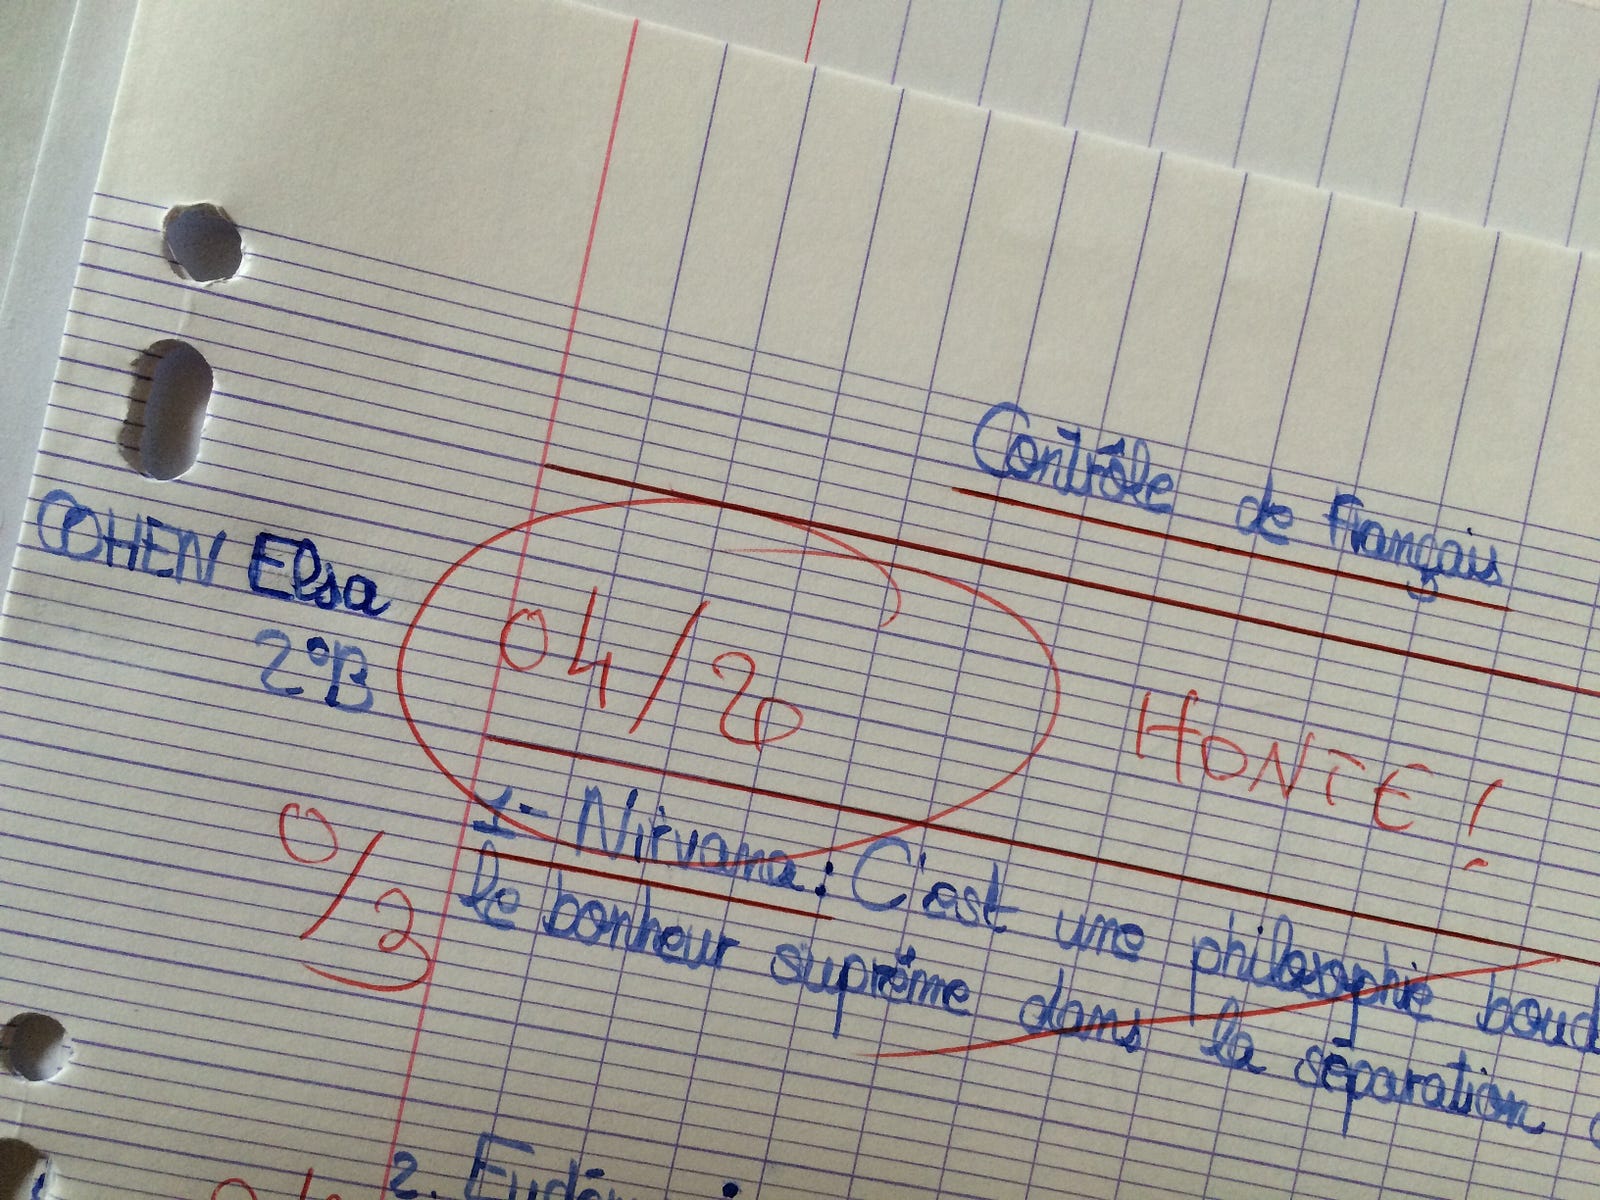 Contrôle de Français
COHEN Elsa
2°B
04/20
HONTE !
0/2
1- Nirvana : C'est une philosophie
le bonheur suprême dans la séparation
2.